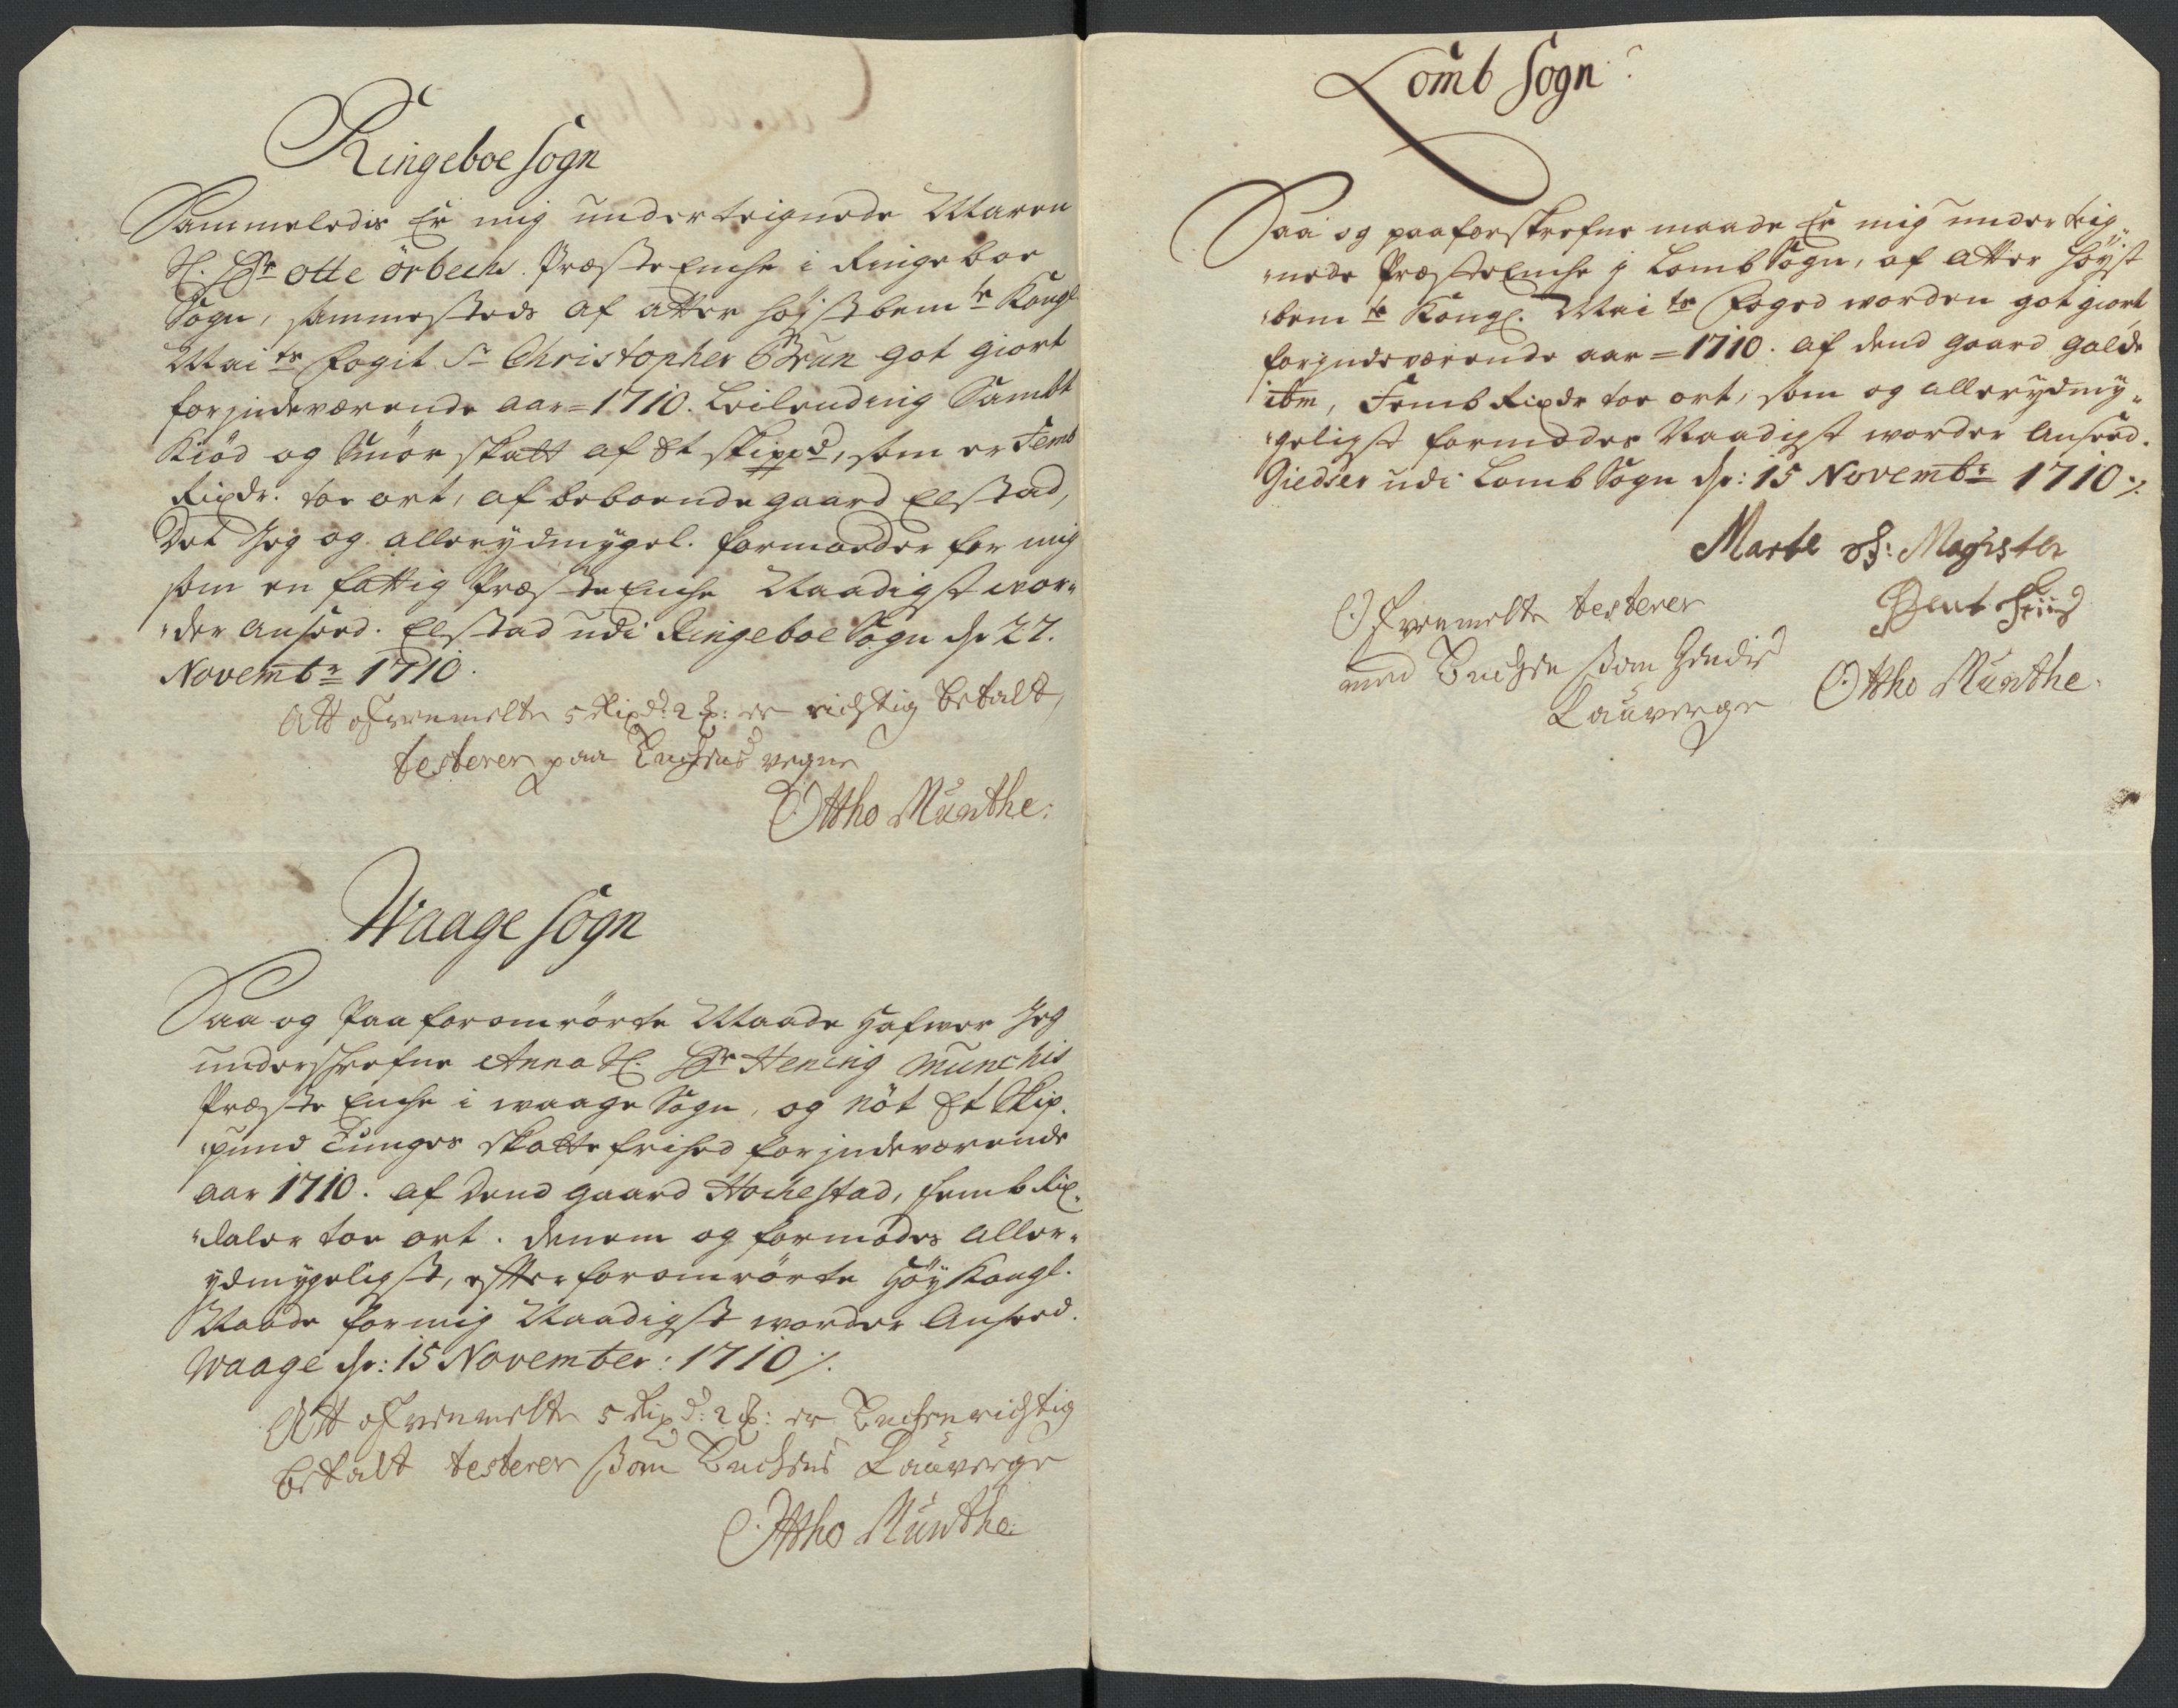 Ringeboe Sogn
Sammeledis Er mig underteignede Maren
Sl. Hr Otte Örbechs Præste Enche i Ringeboe
Sogn, sammesteds af atter høyst bemte Kongl.
Maits Fogit Sr Christopher Brun got giort
for indeværende aar = 1710. Leilending Sambt
Kiød og Smör skatt af Et skippd, som er Femb
Rixdr. toe ort, af beboende gaard Elstad,
Det Jeg og allerydmygel. formoeder for mig
som en fattig Præste Enche Naadigst wor-
"der anseed. Elstad udi Ringeboe Sogn dn 27.
Novembr 1710.
Att ofvenmelte 5 Rixd: 2 : er richtig betalt,
testerer paa Enchens vegne
Ottho Munthe:
Waage Sogn
Saa og Paa foromrörte Maade Hafwer Jeg
underschrefne Anna Sl. Hr Hening Munchis
Præste Enche i Waage Sogn, og nöt Et Skip-
"pund Tunges skatte frihed for indeværende
aar 1710. af Dend gaard Hochestad, femb Rix-
"daler toe ort. denem og formodes aller-
ydmygeligst, efter foromrörte Höy Kongl.
Naade for mig Naadigst worder Anseed.
Waage dn: 15 November: 1710 ./.
Att ofvenmelte 5 Rixd: 2 : er Enchen richtig
betalt testerer som Enchens Lauverge
Ottho Munthe:
Lomb Sogn
Saa og paa forskrefne maade Er mig underteig-
"nede Præste Enche i Lomb Sogn, af atter Höyst
bemte Kongl. Maits Foged worden got giort
for indeværende aar = 1710. af dend gaard Galde
ibm, Femb Rixdr toe ort, som og allerydmy-
"geligst formodes Naadigst worder Anseed.
Giedser udi Lomb Sogn dn: 15 Novembr 1710 ./.
Marte Sl: Magister
Bent Friis
Ofvenmelte testerer
med Enchen som Hendis
Lauverge
Ottho Munthe.